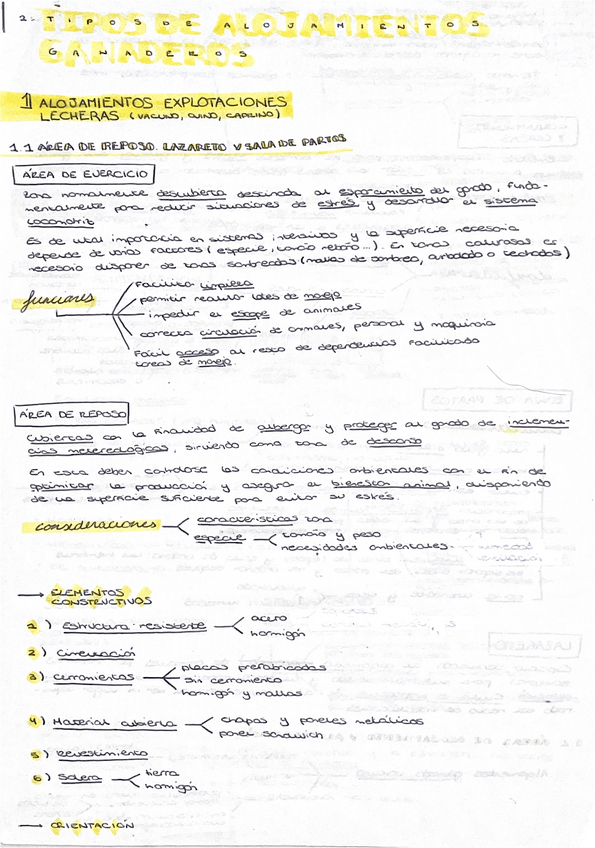 2. TIPOS DE ALOJAMIENTOS
GANADEROS
1 ALOJAMIENTOS EXPLOTACIONES
LECHERAS (VACUNO, OVINO, CAPRINO)
1.1 ÁREA DE REPOSO. LAZARETO Y SALA DE PARTOS
ÁREA DE EJERCICIO
Zona normalmente descubierta destinada al esparcimiento del ganado, funda-
mentalmente para reducir situaciones de estrés y desarrollar el sistema
locomotriz
Es de vital importancia en sistemas intensivos y la superficie necesaria
depende de varios factores (especie, tamaño rebaño...). En zonas calurosas es
necesario disponer de zonas sombreadas (mallas de sombreo, arbolado o techados)
funciones
Facilitar limpieza
permitir realizar labores de manejo
impedir el escape de animales
correcta circulación de animales, personal y maquinaria
Fácil acceso al resto de dependencias facilitado
tareas de manejo.
ÁREA DE REPOSO
Cubiertas con la finalidad de albergar y proteger al ganado de inclemen-
cias meteorológicas, sirviendo como zona de descanso
En esta deben controlarse las condiciones ambientales con el fin de
optimizar la producción y asegurar el bienestar animal, disponiendo
de una superficie suficiente para evitar su estrés.
consideraciones
características zona
especie
tamaño y peso
necesidades ambientales.
→ ELEMENTOS
CONSTRUCTIVOS
1) Estructura resistente
acero
hormigón
2) Cimentación
3) Cerramientos
placas prefabricadas
sin cerramiento
hormigón y mallas
4) Material cubierta
chapas y paneles metálicos
panel sandwich
5) Revestimiento
6) Solera
tierra
hormigón
→ ORIENTACIÓN